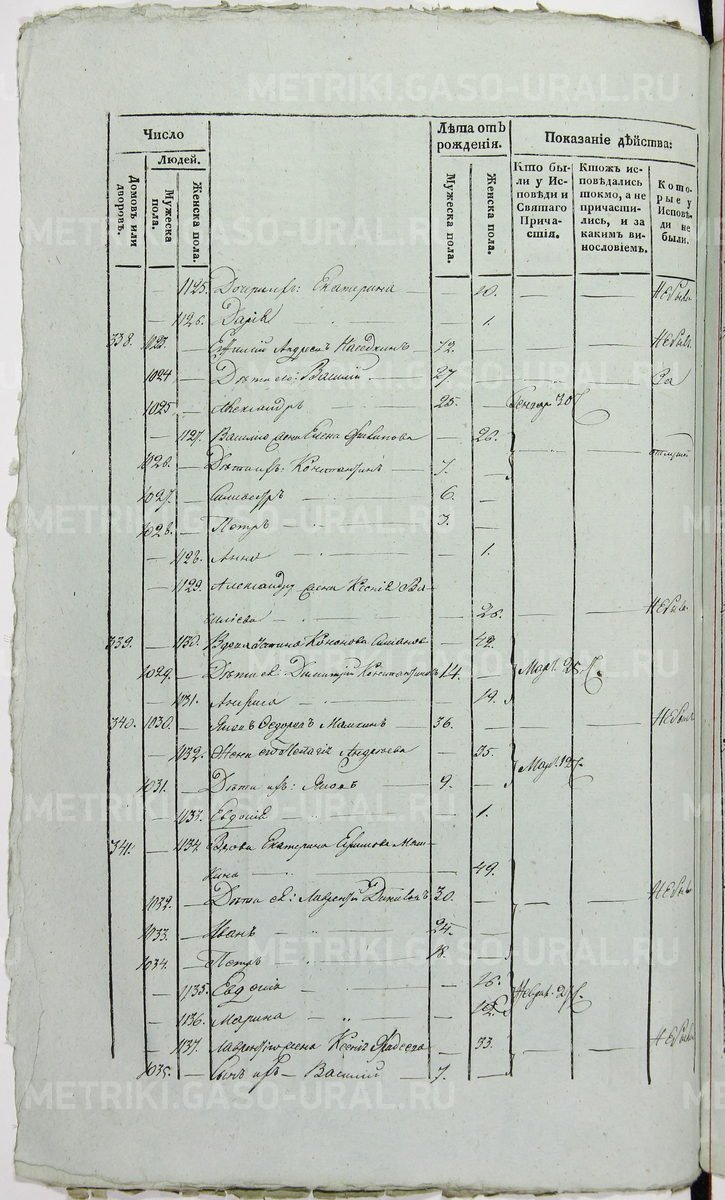 METRIKI.GASO-URAL.RU
Число
Лѣта отъ рожденія.
Показаніе дѣйства:
Людей.
Домовъ или дворовъ.
Мужеска пола.
Женска пола.
Мужеска пола.
Женска пола.
Кто были у Исповѣди и Святаго Причастія.
Ктожъ исповѣдались токмо, а не причастились, и за какимъ винословіемъ.
Которые у Исповѣди не были.
— 1125. Дочери ихъ: Екатерина — 10. — — не была
— 1126. Дарія — 1.
338. 1023. — Андреевъ Наседкинъ — 72. — не былъ
1024 — Дѣти его: Василій — 27 — За
1025 — Александръ — 25. —
— 1127. Василія жена Елена Филипова — 26.
1026. — Дѣти ихъ: Константинъ — 7. —
1027. — Силвестръ — 6. —
1028. — Петръ — 3. —
— 1128. Анна — 1.
— 1129. Александра жена Ксенія Ва-
силіева — 26. — — не была
339. — 1130. Вдова Кононова — 42.
1029. — Дѣти ея: Димитрій Константиновъ 14. — Мар. 25
— 1031. — 19.
340. 1030. — Яковъ Федоровъ Машкинъ — 36. — не былъ
— 1032. Жена его Пелагія Андреева — 35.
Мар. 12
1031. — Дѣти ихъ: Яковъ — 9. —
— 1133. Евдокія — 1.
341. — 1134. Вдова Екатерина Ефимова Маш-
кина — 49.
1032. — Дѣти ея: Лаврентій 30. — не былъ
1033. — Иванъ — 24. —
1034. — Петръ — 18. —
— 1135. Евдокія — 26.
— 1136. Марина — „ —
— 1137. Лаврентія жена Ксенія Фадеева — 33. — не была
1035. — Сынъ ихъ — Василій — 7. —